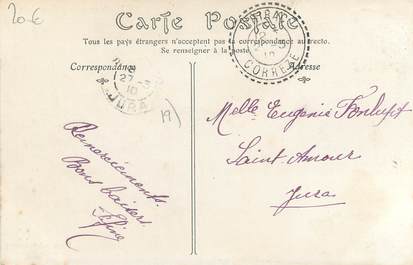 20-€
Carte Postale
Tous les pays étrangers n'acceptent pas la correspondance au recto.
Se renseigner à la poste
Correspondance
Adresse
CORRÈZE
27-3
10
JURA
19
Remerciements.
Bons baisers
Melle Eugénie
Saint-Amour
Jura